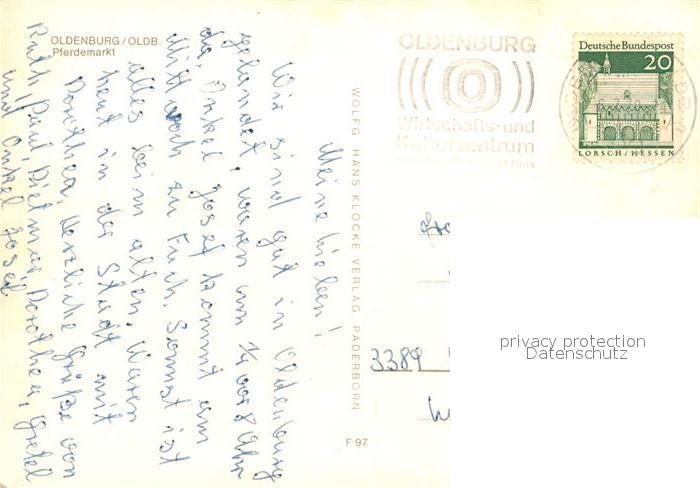 OLDENBURG/OLDB.
Pferdemarkt
Meine Lieben!
Wir sind gut in Oldenburg
gelandet, waren um 1/4 vor 8 Uhr
da, Onkel Josef kommt am
Mittwoch zu Euch. Sonst ist
alles beim alten. Waren
heut in der Stadt mit
Dorothea. Herzliche Grüße von
Ruth, Paul, Dietmar, Dorothea, Gretel
und Onkel Josef
WOLFG. HANS KLOCKE VERLAG PADERBORN
F 97
OLDENBURG
Wirtschafts-und
Kulturzentrum
Deutsche Bundespost
20
LORSCH/HESSEN
3389
privacy protection
Datenschutz